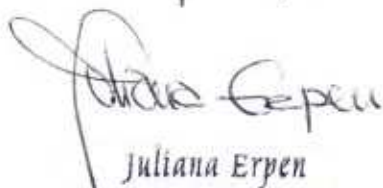 Juliana Erpen
Juliana Erpen